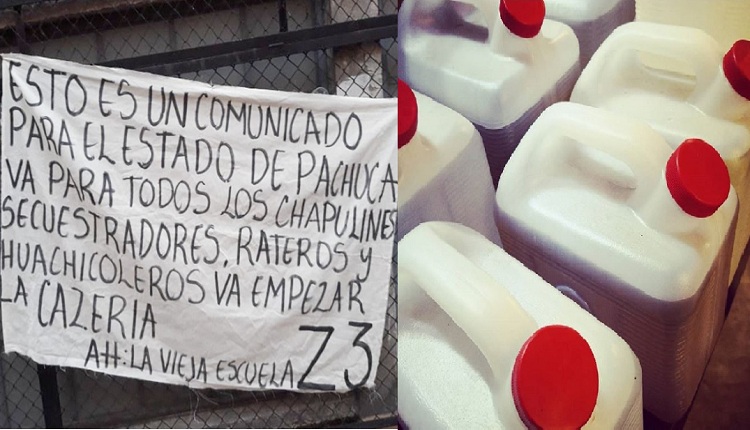 ESTO ES UN COMUNICADO
PARA EL ESTADO DE PACHUCA
VA PARA TODOS LOS CHAPULINES
SECUESTRADORES, RATEROS Y
HUACHICOLEROS VA EMPEZAR
LA CAZERIA
Att: LA VIEJA ESCUELA Z3